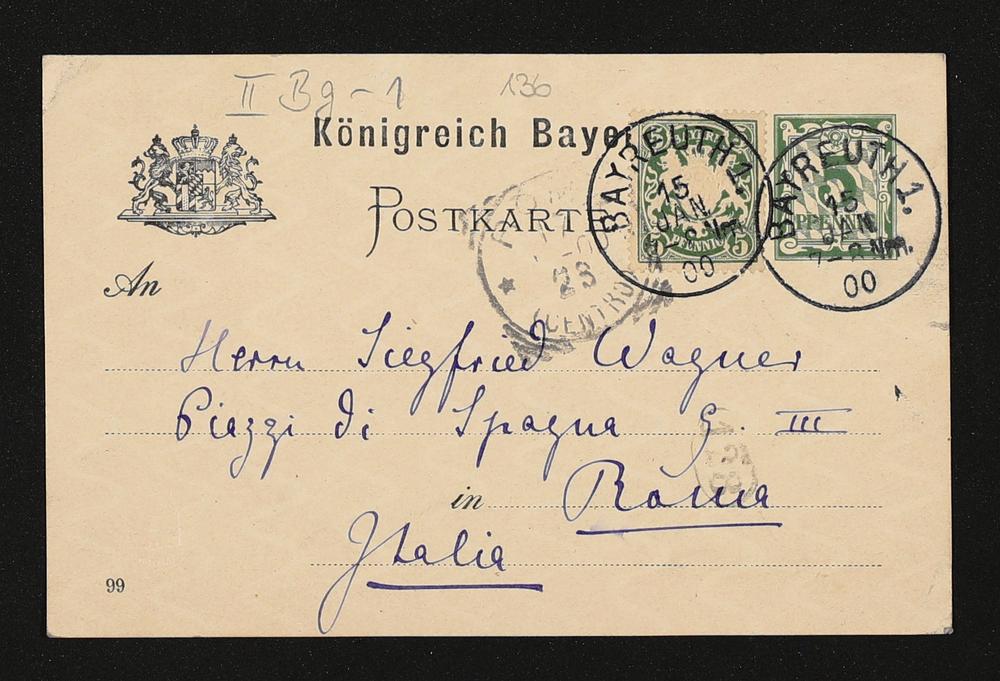 II Bg-1 136
Königreich Baye
POSTKARTE
BAYREUTH 1.
15
JAN.
00
5
PFENNIG
5
BAYREUTH 1.
15
JAN
7-8 Nm.
00
5
PFENNIG
23
(CENTRO
An
Herrn Siegfried Wagner
Piazzi di Spagna 9. III
in Roma
Italia
99